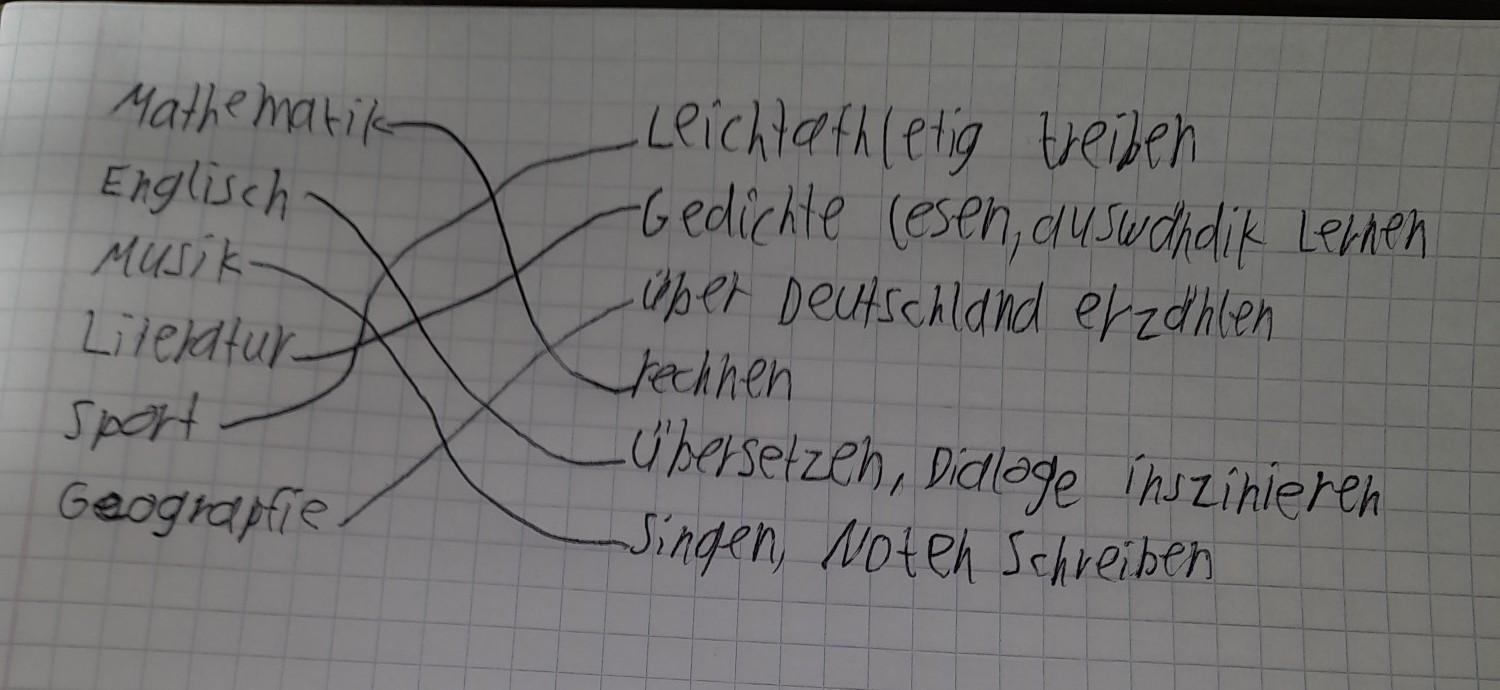 Mathematik
Englisch
Musik
Literatur
Sport
Geograpfie
Leichtathletig treiben
Gedichte lesen, auswändik Lernen
über Deutschland erzählen
rechnen
Übersetzen, Dialoge inszinieren
Singen, Noten Schreiben